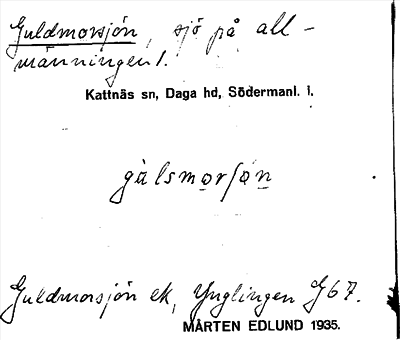 Guldmorsjön, sjö på all-
männingen 1.
Kattnäs sn, Daga hd, Södermanl. l.
gùlsmo̲rʃön̲
Guldmorsjön ek, Ynglingen G67.
MÅRTEN EDLUND 1935.